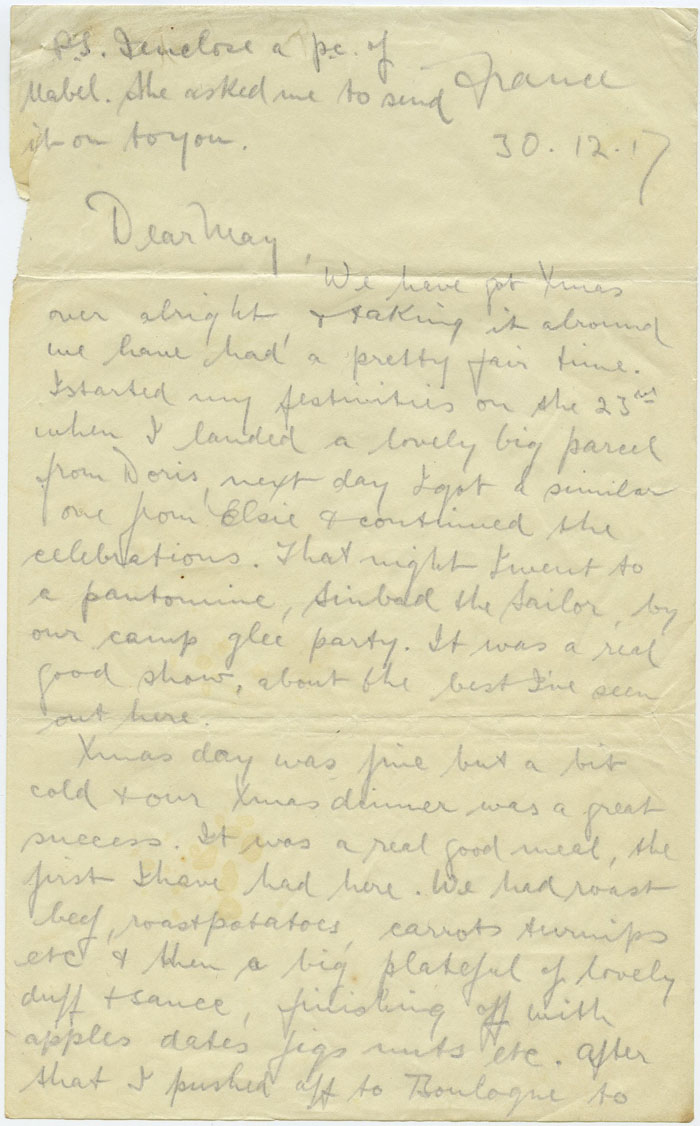 P.S. I enclose a p.c. of
Mabel. She asked me to send
it on to you.
France
30.12.17
Dear May
We have got Xmas
over alright, & taking it alround
we have had a pretty fair time.
I started my festivities on the 23rd
when I landed a lovely big parcel
from Doris, next day I got a similar
one from Elsie & continued the
celebrations. That night I went to
a pantomine, Sinbad the Sailor, by
our camp glee party. It was a real
good show, about the best I've seen
out here.
Xmas day was fine but a bit
cold & our Xmas dinner was a great
success. It was a real good meal, the
first I have had here. We had roast
beef, roast potatoes, carrots turnips
etc & then a big plateful of lovely
duff & sauce, finishing off with
apples dates figs nuts etc. After
that I pushed off to Boulogne to